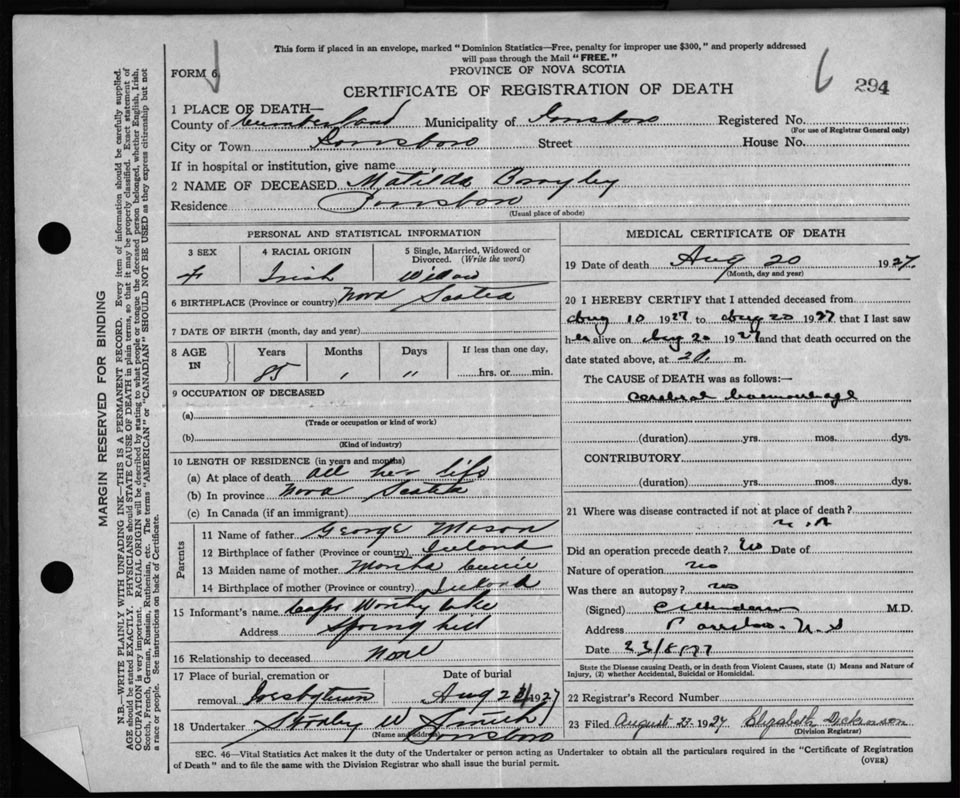 This form if placed in an envelope, marked "Dominion Statistics—Free, penalty for improper use $300," and properly addressed
will pass through the Mail "FREE."
FORM 6.
PROVINCE OF NOVA SCOTIA
6 294
CERTIFICATE OF REGISTRATION OF DEATH
1 PLACE OF DEATH—
County of Cumberland Municipality of Registered No.
(For use of Registrar General only)
City or Town Street House No.
If in hospital or institution, give name
2 NAME OF DECEASED Matilda
Residence
(Usual place of abode)
PERSONAL AND STATISTICAL INFORMATION
3 SEX 4 RACIAL ORIGIN 5 Single, Married, Widowed or
Divorced. (Write the word)
F Irish Widow
6 BIRTHPLACE (Province or country) Nova Scotia
7 DATE OF BIRTH (month, day and year)
8 AGE IN Years Months Days If less than one day,
85 hrs. or min.
9 OCCUPATION OF DECEASED
(a)
(Trade or occupation or kind of work)
(b)
(Kind of industry)
10 LENGTH OF RESIDENCE (in years and months)
(a) At place of death all her life
(b) In province Nova Scotia
(c) In Canada (if an immigrant)
Parents
11 Name of father George Mason
12 Birthplace of father (Province or country) Ireland
13 Maiden name of mother
14 Birthplace of mother (Province or country) Ireland
15 Informant's name Capt
Address Spring hill
16 Relationship to deceased None
17 Place of burial, cremation or Date of burial
removal Aug 1927
18 Undertaker W Smith
(Name and address)
MEDICAL CERTIFICATE OF DEATH
19 Date of death Aug 20 1927.
(Month, day and year)
20 I HEREBY CERTIFY that I attended deceased from
Aug 10 1927 to Aug 20 1927 that I last saw
her alive on Aug 20 1927 and that death occurred on the
date stated above, at m.
The CAUSE of DEATH was as follows:—
Cerebral haemorrhage
(duration) yrs. mos. dys.
CONTRIBUTORY
(duration) yrs. mos. dys.
21 Where was disease contracted if not at place of death?
Did an operation precede death? No Date of
Nature of operation no
Was there an autopsy? no
(Signed) M.D.
Address Parrsboro. N.S
Date
State the Disease causing Death, or in death from Violent Causes, state (1) Means and Nature of
Injury, (2) whether Accidental, Suicidal or Homicidal.
22 Registrar's Record Number
23 Filed August 23 1927 Elizabeth Dickinson
(Division Registrar)
SEC. 46—Vital Statistics Act makes it the duty of the Undertaker or person acting as Undertaker to obtain all the particulars required in the "Certificate of Registration
of Death" and to file the same with the Division Registrar who shall issue the burial permit.
(OVER)
MARGIN RESERVED FOR BINDING
N.B.—WRITE PLAINLY WITH UNFADING INK—THIS IS A PERMANENT RECORD. Every item of information should be carefully supplied.
AGE should be stated EXACTLY. PHYSICIANS should STATE CAUSE OF DEATH in plain terms, so that it may be properly classified. Exact statement of
OCCUPATION is very important. RACIAL ORIGIN will be described by stating to what people or tongue the deceased person belonged, whether English, Irish,
Scotch, French, German, Russian, Ruthenian, etc. The terms "AMERICAN" or "CANADIAN" SHOULD NOT BE USED as they express citizenship but not
a race or people. See instructions on back of Certificate.